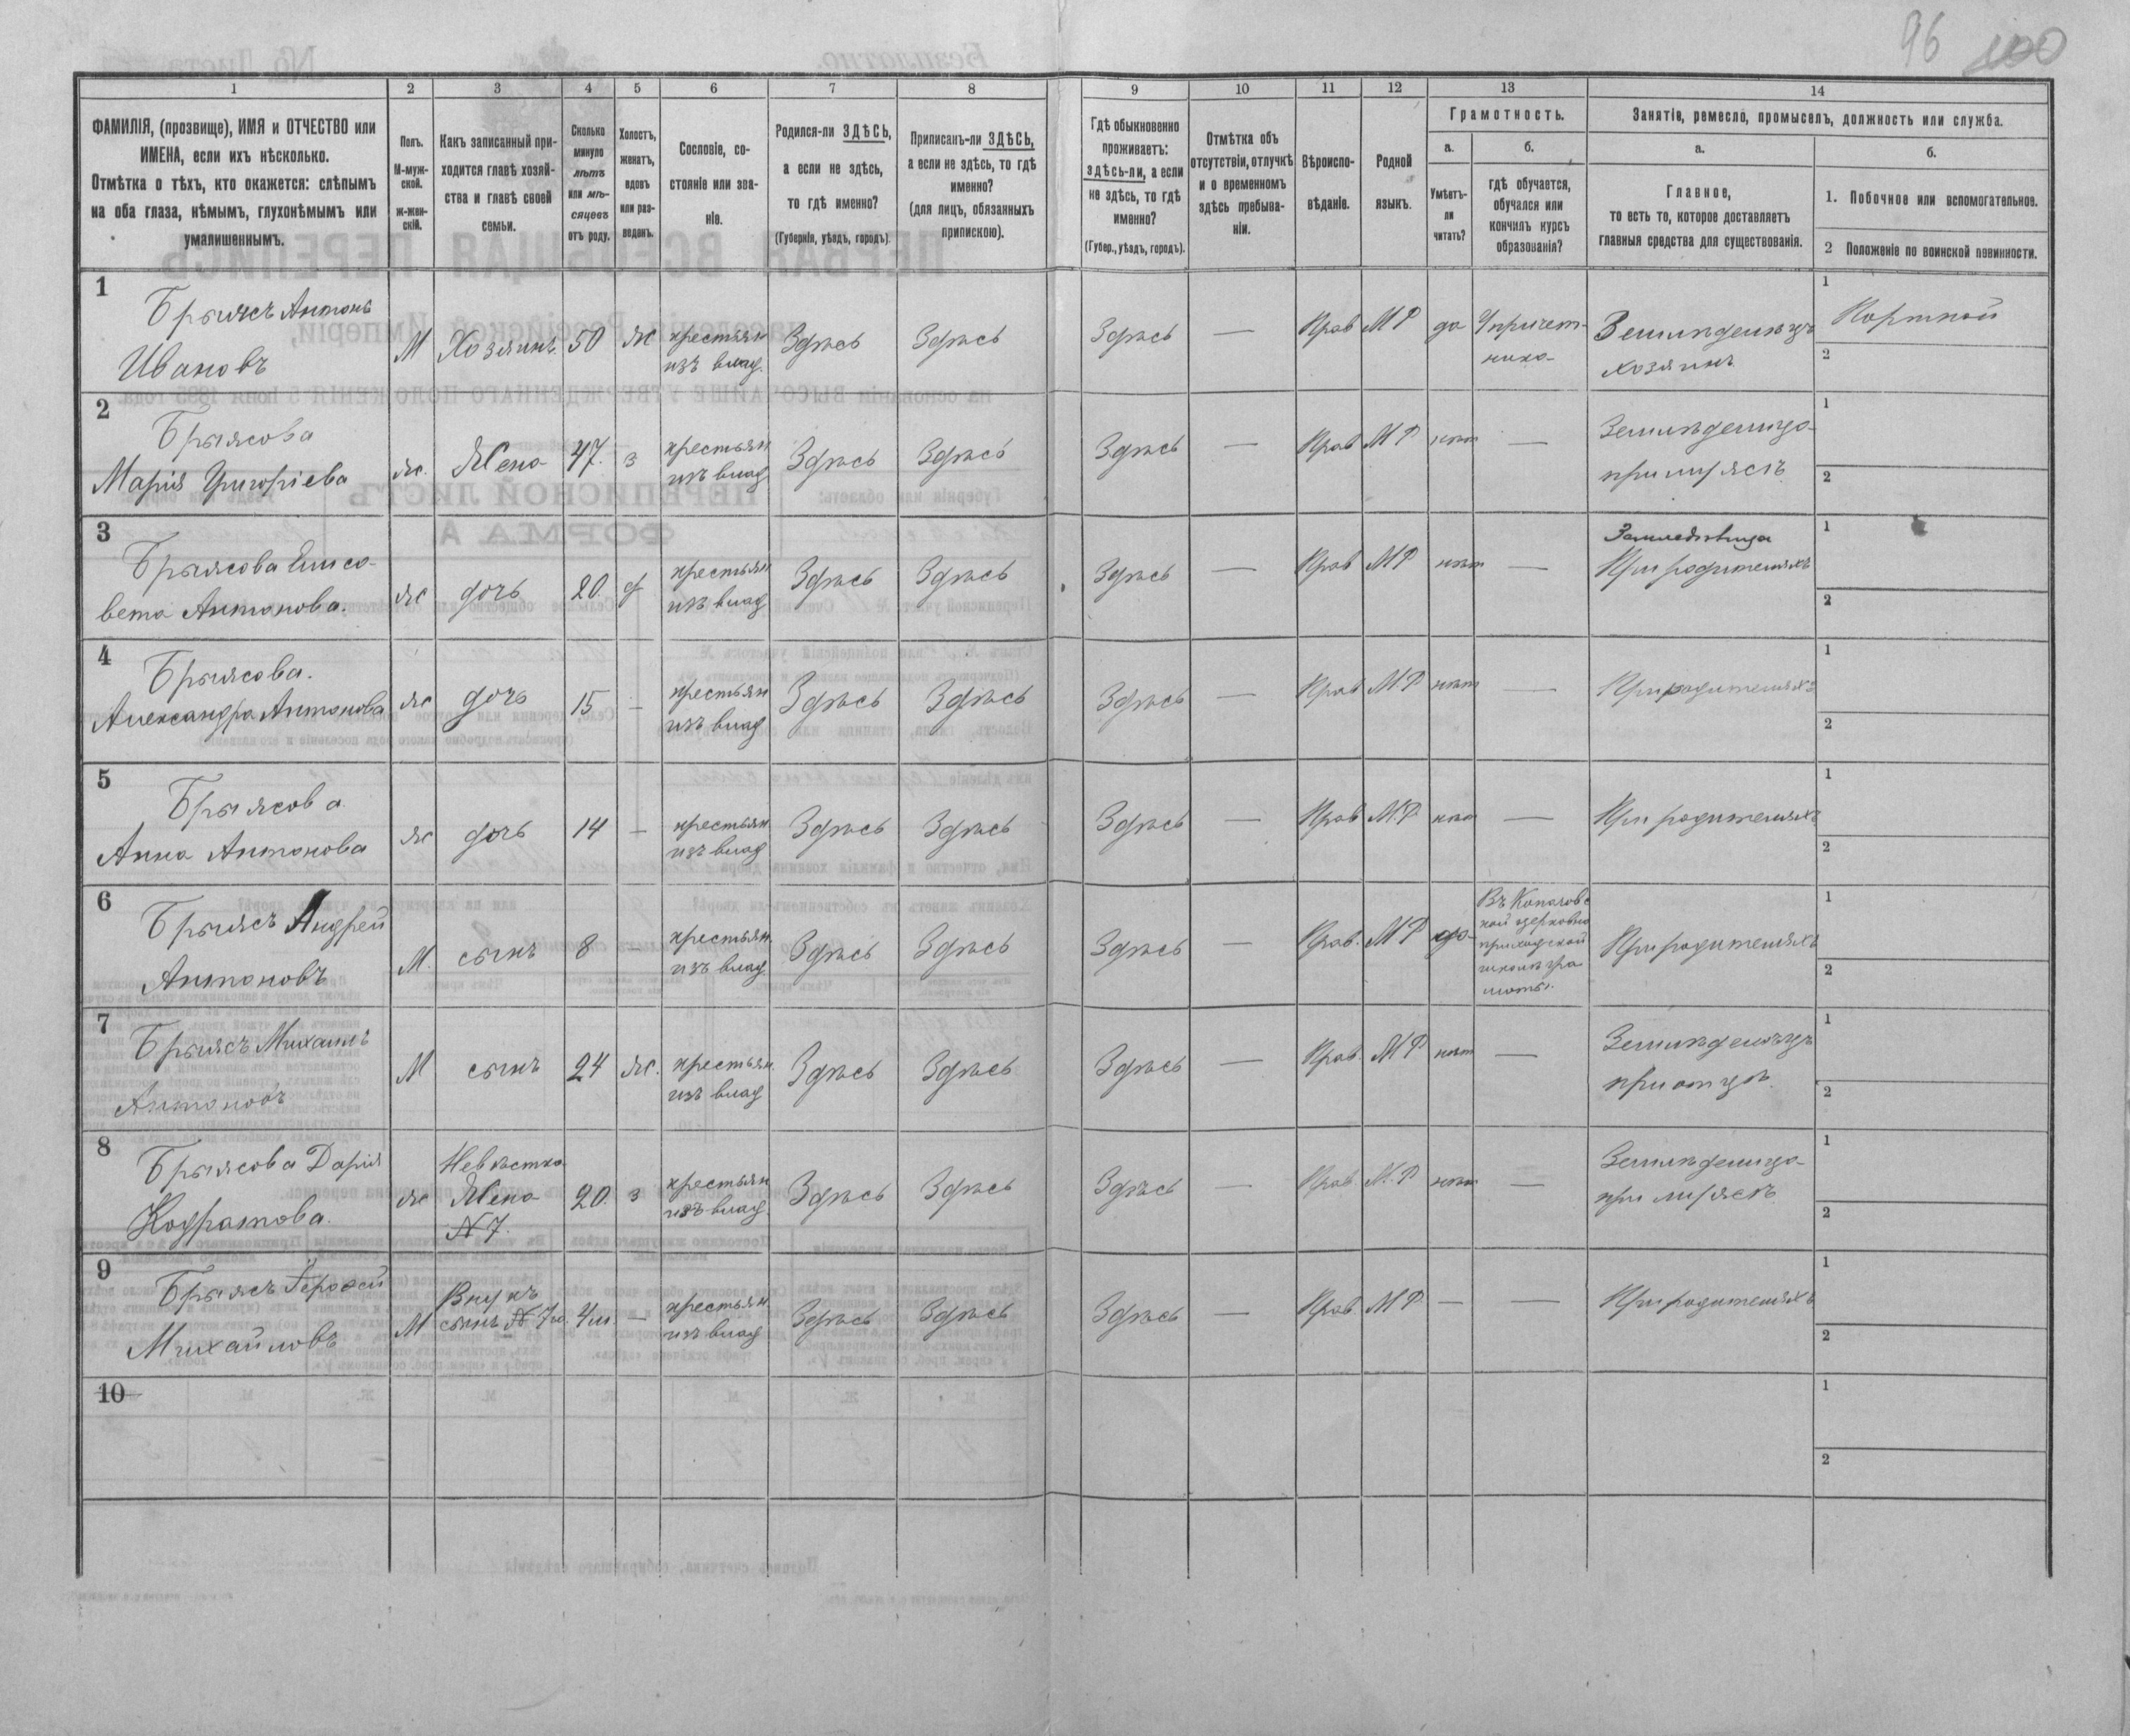 96 100
1 2 3 4 5 6 7 8 9 10 11 12 13 14
ФАМИЛІЯ, (прозвище), ИМЯ и ОТЧЕСТВО или
ИМЕНА, если ихъ нѣсколько.
Отмѣтка о тѣхъ, кто окажется: слѣпымъ
на оба глаза, нѣмымъ, глухонѣмымъ или
умалишеннымъ.
Полъ.
М-муж-
ской.
Ж-жен-
скій.
Какъ записанный при-
ходится главѣ хозяй-
ства и главѣ своей
семьи.
Сколько
минуло
лѣтъ
или мѣ-
сяцевъ
отъ роду.
Холостъ,
женатъ,
вдовъ
или раз-
веденъ.
Сословіе, со-
стояніе или зва-
ніе.
Родился-ли ЗДѢСЬ,
а если не здѣсь,
то гдѣ именно?
(Губернія, уѣздъ, городъ).
Приписанъ-ли ЗДѢСЬ,
а если не здѣсь, то гдѣ
именно?
(для лицъ, обязанныхъ
припискою).
Гдѣ обыкновенно
проживаетъ:
здѣсь-ли, а если
не здѣсь, то гдѣ
именно?
(Губер., уѣздъ, городъ).
Отмѣтка объ
отсутствіи, отлучкѣ
и о временномъ
здѣсь пребыва-
ніи.
Вѣроиспо-
вѣданіе.
Родной
языкъ.
Грамотность.
а.
Умѣетъ-
ли
читать?
б.
гдѣ обучается,
обучался или
кончилъ курсъ
образованія?
Занятіе, ремесло, промыселъ, должность или служба.
а.
Главное,
то есть то, которое доставляетъ
главныя средства для существованія.
б.
1. Побочное или вспомогательное.
2 Положеніе по воинской повинности.
1
Брыясъ Антонъ
Ивановъ
М Хозяинъ 50 ж
крестьян
изъ влад.
Здѣсь Здѣсь Здѣсь — Прав МР да
У причет-
ника
Земледѣлецъ
хозяинъ
1 Портной
2
2
Брыясова
Марія Григоріева
ж. Жена 47. з
крестьян
изъ влад
Здѣсь Здѣсь Здѣсь — Прав МР нѣт —
Земледѣлица
при мужѣ
1
2
3
Брыясова Елиса-
вета Антонова.
ж дочь 20. д
крестьян
изъ влад
Здѣсь Здѣсь Здѣсь — Прав МР нѣт —
Земледѣлица
При родителяхъ
1
2
4
Брыясова.
Александра Антонова
ж дочь 15 —
крестьян
изъ влад
Здѣсь Здѣсь Здѣсь — Прав МР нѣт —
При родителяхъ
1
2
5
Брыясова
Анна Антонова
ж дочь 14 —
крестьян
изъ влад
Здѣсь Здѣсь Здѣсь — Прав М.Р. нѣт —
При родителяхъ
1
2
6
Брыясъ Андрей
Антоновъ
М. сынъ 8 —
крестьян
изъ влад
Здѣсь Здѣсь Здѣсь — Прав. МР да
церковно
приходской
школѣ гра
моты.
При родителяхъ
1
2
7
Брыясъ Михаилъ
Антоновъ
М сынъ 24 ж.
крестьян.
изъ влад
Здѣсь Здѣсь Здѣсь — Прав. МР нѣт —
Земледѣлецъ
при отцѣ.
1
2
8
Брыясова Дарія
Кодратова.
ж
Невѣстка
Жена
№ 7.
20. з
крестьян
изъ влад.
Здѣсь Здѣсь Здѣсь — Прав. М.Р нѣт —
Земледѣлица
при мужѣ.
1
2
9
Брыясъ
Михайловъ
М
Внукъ
сынъ № 7го
4 м. —
крестьян.
изъ влад
Здѣсь Здѣсь Здѣсь — Прав. МР — —
При родителяхъ
1
2
10
1
2